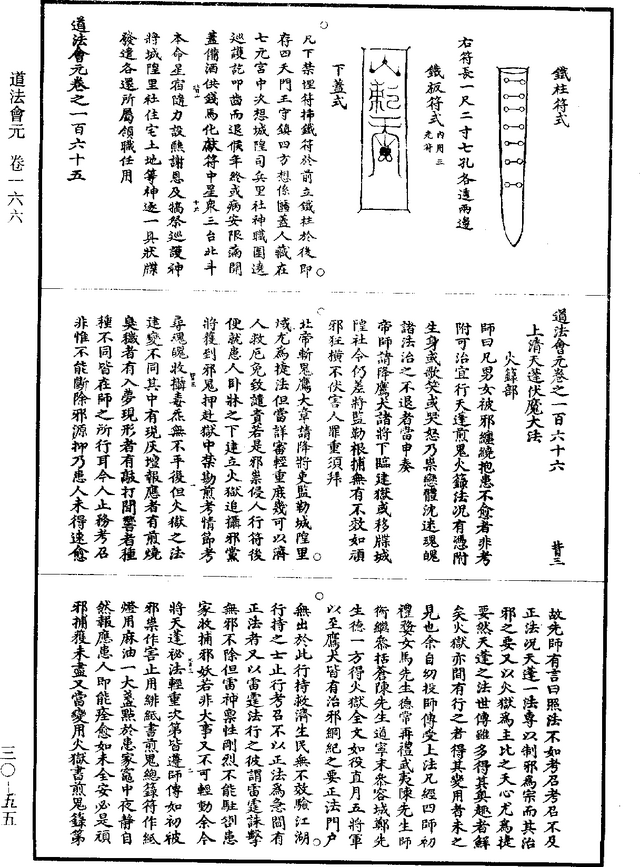 鐵柱符式
右符長一尺二寸七孔各透兩邊
鐵板符式 內用三光符
下蓋式
凡下禁埋符揷鐵符於前立鐵柱於後即
存四天門王守鎭四方想係驅蓋人藏在
七元宮中次想城隍司兵里社神職圍遶
巡護訖叩齒而退候年終或病安限滿開
蓋備酒供錢馬化獻符中星衆三台北斗
本命星宿隨力設醮謝恩及犒祭巡護神
將城隍里社住宅土地等神逐一具狀牒
發遣各還所屬領職任用
道法會元卷之一百六十五
道法會元卷之一百六十六
上清天蓬伏魔大法
火籙部
師曰凡男女被邪纏繞抱患不愈者非考
附可治宜行天蓬煎鬼火籙法況有憑附
生身或歌笑或哭怒乃祟戀體沈迷瑰魄
諸法治之不退者當申奏
帝師請降鷹犬諸將下臨建獄或移牒城
隍社令仍差將監勒根捕無有不效如頑
邪狂橫不伏害人罪重須拜
北帝斬鬼鷹犬章請降將吏監勒城隍里
域尤爲捷法但當詳審輕重庶幾可以濟
人救厄免致譴責若是邪祟侵人行符後
便就患人卧牀之下建立火獄追攝邪黨
將獲到邪鬼押赴獄中禁勘煎考情節考
尋魂魄收攝毒炁無不平復但火獄之法
建變不同其中有現灰壇報應者有煎燒
臭穢者有入夢現形者有敲打聞響者種
種不同皆在師之所行耳今人止務考召
非惟不能斷除邪源抑乃患人未得速愈
故先師有言曰照法不如考召考召不及
正法況天蓬一法專以制邪爲宗而其治
邪之要又以火獄爲主比之天心尤爲捷
要然天蓬之法世傳雖多得其奥趣者鮮
矣火獄亦間有行之者得其變用者未之
見也余自幼投師傳受上法凡經四師初
禮婺女馬先生德常再禮武夷陳先生師
衡繼參括蒼陳先生道寧末參容城鄭先
生德一方得火獄全文如役直月五將軍
以至鷹犬皆有治邪綱紀之要正法門户
無出於此行持救濟生民無不效驗江湖
行持之士止行考召不以正法爲急間有
正法者又以雷霆法行之彼謂雷霆誅擊
無邪不除但雷神稟性剛烈不能駐劄患
家收捕邪妖若非大事又不可輕動余今
將天蓬祕法輕重次第皆遵師傳如初被
邪祟作害止用緋紙書煎鬼總籙符作紙
燈用麻油一大盞點於患家竈中夜靜自
然報應患人即能痊愈如未全安必是頑
邪捕獲未盡又當變用火獄書煎鬼籙第
道法會元 卷一六六
三〇-五五